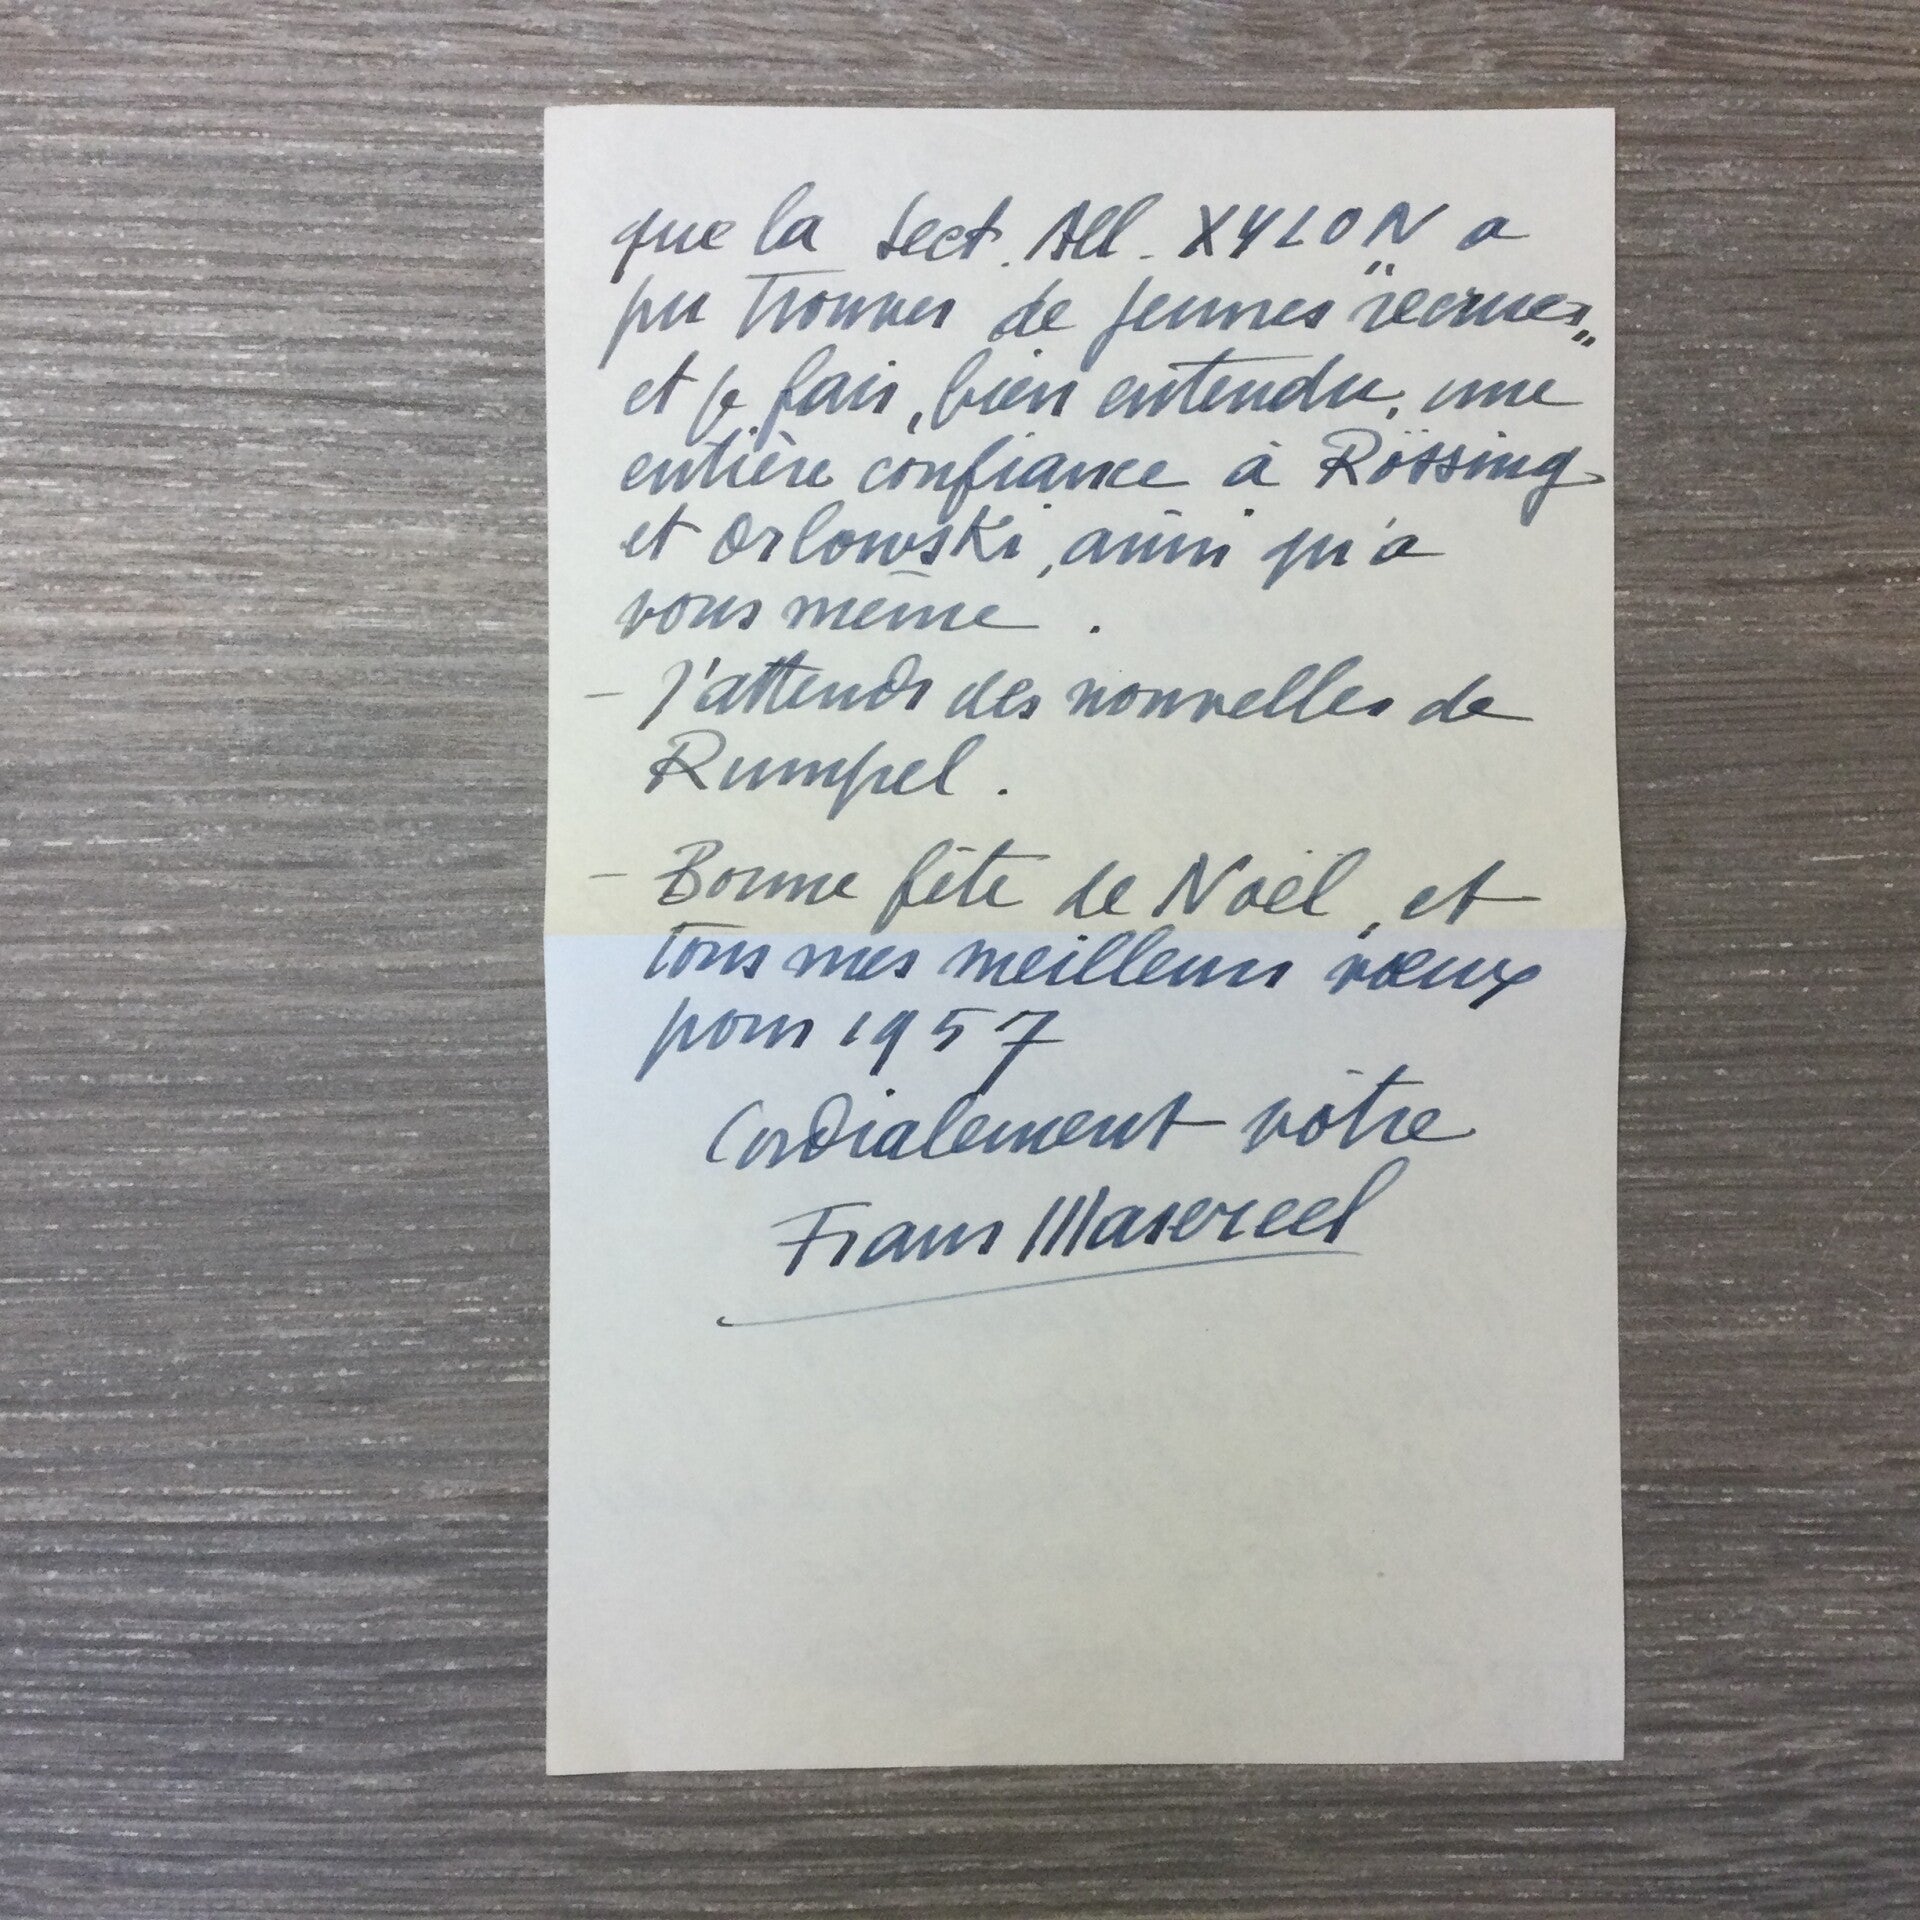 que la Sect. All. XYLON a
pu trouver de jeunes "recrues"
et je fais, bien entendu, une
entière confiance à Rössing
et Orlowski, ainsi qu'a
vous même.
- J'attends des nouvelles de
Rumpel.
- Bonne fête de Noël, et
tous mes meilleurs vœux
pour 1957
Cordialement vôtre
Frans Masereel